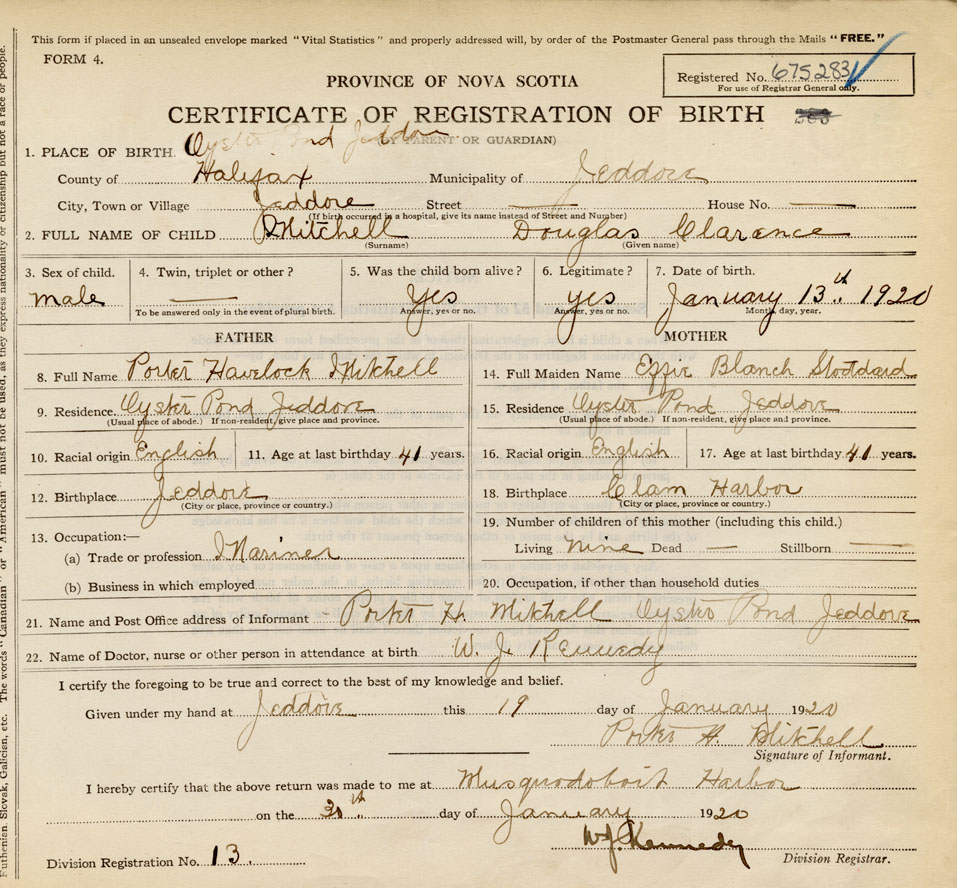 This form if placed in an unsealed envelope marked "Vital Statistics" and properly addressed will, by order of the Postmaster General pass through the Mails "FREE."
FORM 4.
Registered No. 675283
For use of Registrar General only.
PROVINCE OF NOVA SCOTIA
CERTIFICATE OF REGISTRATION OF BIRTH
(BY PARENT OR GUARDIAN)
1. PLACE OF BIRTH. Oyster Pond Jeddore
County of Halifax Municipality of Jeddore
City, Town or Village Jeddore Street — House No. —
(If birth occurred in a hospital, give its name instead of Street and Number)
2. FULL NAME OF CHILD Mitchell Douglas Clarence
(Surname) (Given name)
3. Sex of child. 4. Twin, triplet or other? 5. Was the child born alive? 6. Legitimate? 7. Date of birth.
male — Yes yes January 13th 1920
To be answered only in the event of plural birth. Answer, yes or no. Answer, yes or no. Month, day, year.
FATHER MOTHER
8. Full Name Porter Havelock Mitchell 14. Full Maiden Name Effie Blanch Stoddard
9. Residence Oyster Pond Jeddore 15. Residence Oyster Pond Jeddore
(Usual place of abode.) If non-resident, give place and province. (Usual place of abode.) If non-resident, give place and province.
10. Racial origin English 11. Age at last birthday 41 years. 16. Racial origin English 17. Age at last birthday 41 years.
12. Birthplace Jeddore 18. Birthplace Clam Harbor
(City or place, province or country.) (City or place, province or country.)
13. Occupation:— 19. Number of children of this mother (including this child.)
(a) Trade or profession Mariner Living nine Dead — Stillborn —
(b) Business in which employed 20. Occupation, if other than household duties
21. Name and Post Office address of Informant - Porter H. Mitchell Oyster Pond Jeddore
22. Name of Doctor, nurse or other person in attendance at birth W. J. Kennedy
I certify the foregoing to be true and correct to the best of my knowledge and belief.
Given under my hand at Jeddore this 19 day of January 1920
Porter H. Mitchell
Signature of Informant.
I hereby certify that the above return was made to me at Musquodoboit Harbor
on the 30th day of January 1920
W J. Kennedy
Division Registration No. 13. Division Registrar.
Ruthenian, Slovak, Galician, etc. The words "Canadian" or "American" must not be used, as they express nationality or citizenship but not a race or people.